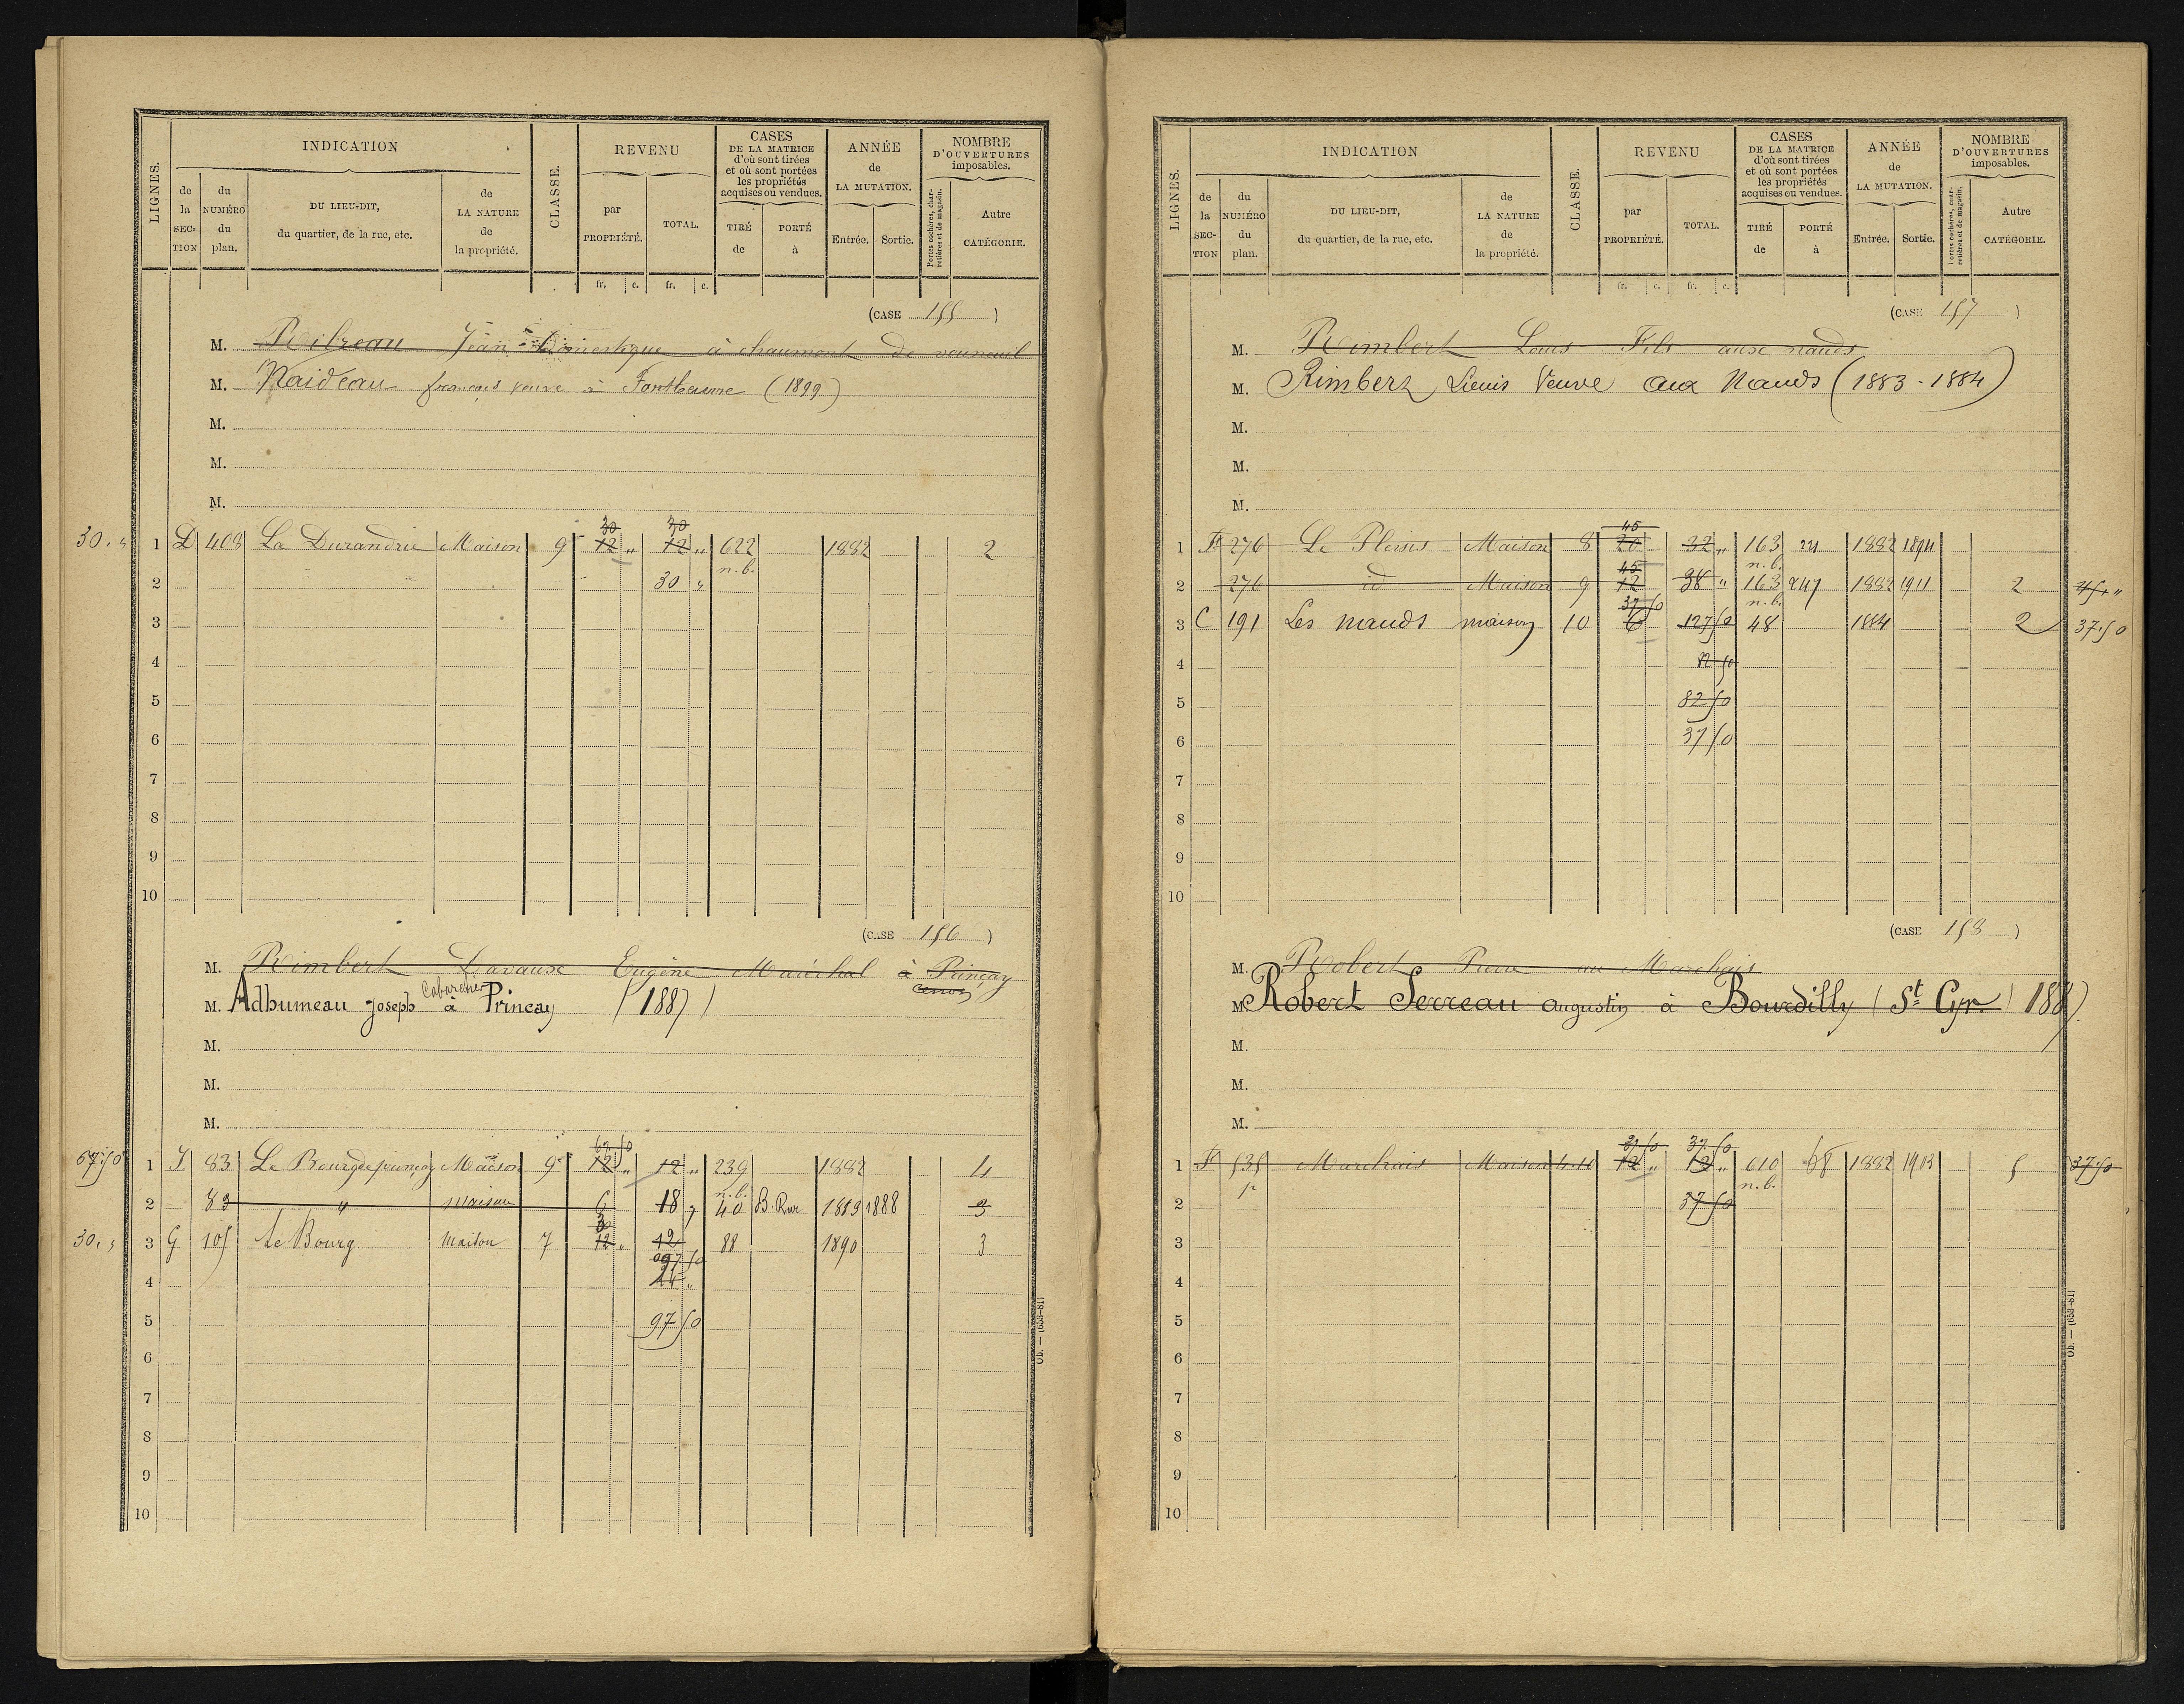 LIGNES.
INDICATION
de la SECTION
du NUMÉRO du plan.
DU LIEU-DIT, du quartier, de la rue, etc.
de LA NATURE de la propriété.
CLASSE.
REVENU
par PROPRIÉTÉ.
TOTAL.
fr. c. fr. c.
CASES DE LA MATRICE d'où sont tirées et où sont portées les propriétés acquises ou vendues.
TIRÉ de
PORTÉ à
ANNÉE de LA MUTATION.
Entrée. Sortie.
NOMBRE D'OUVERTURES imposables.
Portes cochères, charretières et de magasin.
Autre CATÉGORIE.
(CASE 155)
M. Ribreau Jean Domestique à chaumont de vouneuil
M. Naideau françois veuve à (1899)
M.
M.
M.
30 „ 1 D 408 La Durandrie Maison 9 30 12 „ 30 12 „ 622 1882 2
n.b.
2 30 „
3
4
5
6
7
8
9
10
(CASE 156)
M. Rimbert Davaux Eugène Maréchal à Prinçay
M. Adhumeau Joseph Cabaretier à Princay (1887)
M.
M.
M.
67.50 1 83 Le Bourg Maison 9 67 50 12 „ 12 „ 239 1882 4
n.b.
2 83 „ maison 6 18 „ 40 1889 1888 3
30 „ 3 G 105 Le Bourg Maison 7 30 12 „ 12 88 1890 3
97 50
4 24 „
5 97 50
6
7
8
9
10
Ob. — (653-81)
LIGNES.
INDICATION
de la SECTION
du NUMÉRO du plan.
DU LIEU-DIT, du quartier, de la rue, etc.
de LA NATURE de la propriété.
CLASSE.
REVENU
par PROPRIÉTÉ.
TOTAL.
fr. c. fr. c.
CASES DE LA MATRICE d'où sont tirées et où sont portées les propriétés acquises ou vendues.
TIRÉ de
PORTÉ à
ANNÉE de LA MUTATION.
Entrée. Sortie.
NOMBRE D'OUVERTURES imposables.
Portes cochères, charretières et de magasin.
Autre CATÉGORIE.
(CASE 157)
M. Rimbert Louis Fils aux nauds
M. Rimbert Louis Veuve aux Nauds (1883-1884)
M.
M.
M.
1 276 Le Plessis Maison 8 45 20 32 „ 163 1882 1894
n.b.
2 276 id Maison 9 45 12 38 „ 163 247 1882 1911 2 45 „
n.b.
3 C 191 Les nauds maison 10 37 50 6 127 50 48 1884 2 37.50
4 82 50
5 82 50
6 37 50
7
8
9
10
(CASE 158)
M. Robert Pierre au Marchais
M. Robert Serreau augustin à Bourdilly (St Cyr.)
M.
M.
M.
1 535 Marchais Maison 37 50 12 „ 37 50 12 „ 610 68 1882 1913 5 37.50
p n.b.
2 37 50
3
4
5
6
7
8
9
10
Ob. — (653-81)